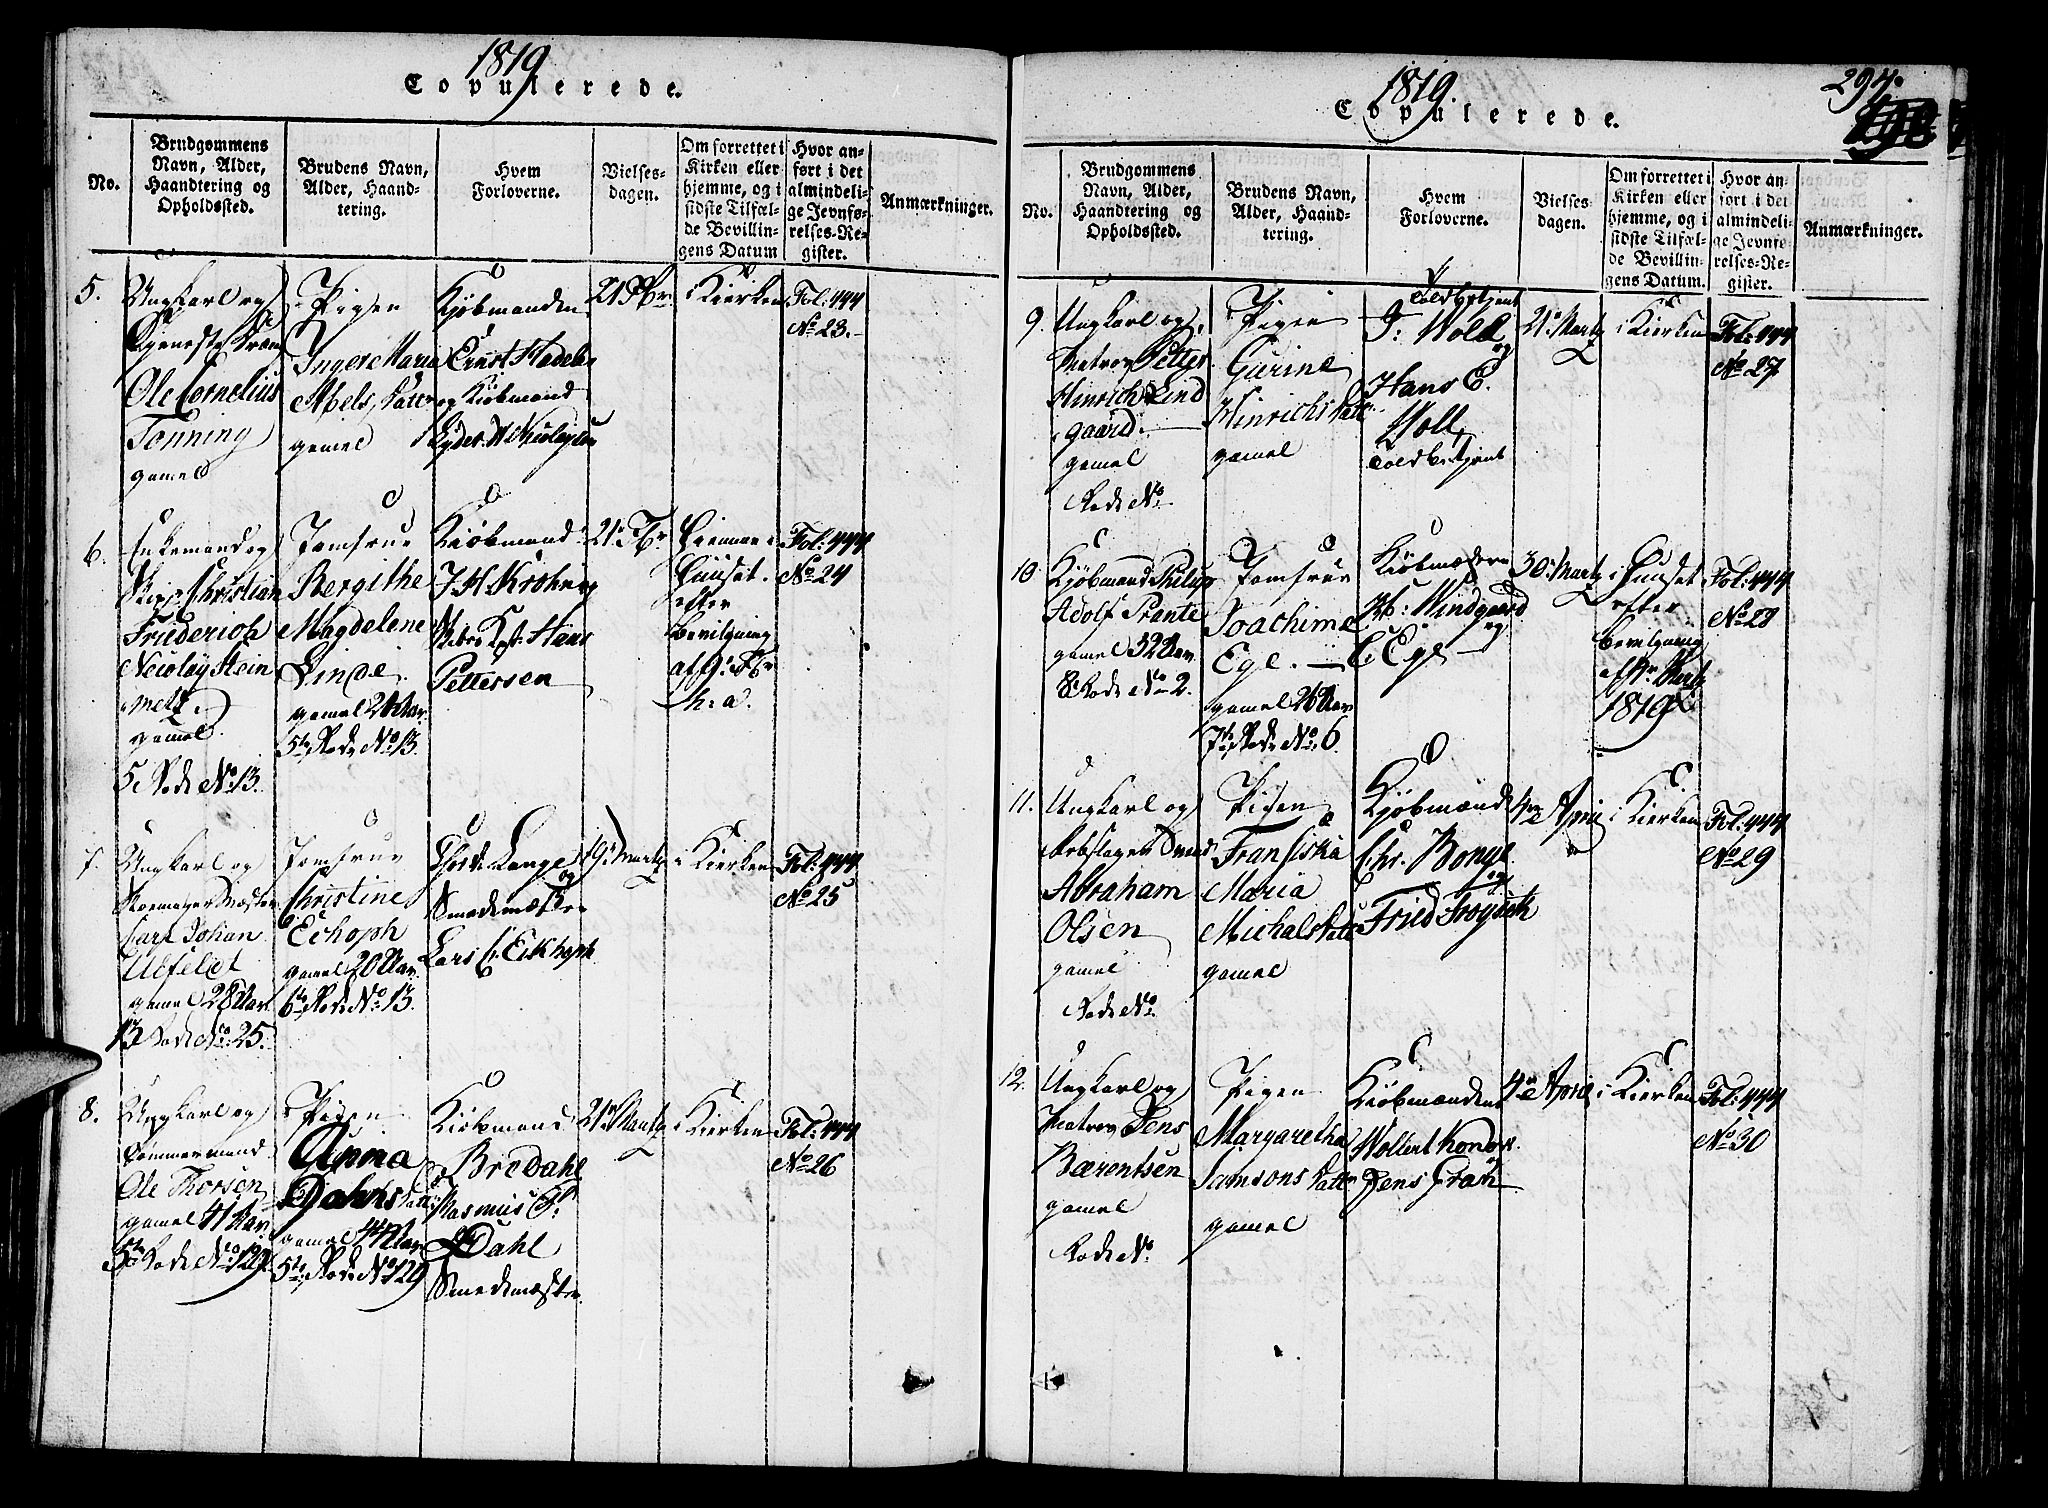 1819
Copulerede.
No.
Brudgommens
Navn, Alder,
Haandtering og
Opholdssted.
Brudens Navn,
Alder, Haand-
tering.
Hvem
Forloverne.
Vielses-
dagen.
Om forrettet i
Kirken eller
hjemme, og i
sidste Tilfæl-
de Bevillin-
gens Datum
Hvor an-
ført i det
almindeli-
ge Jevnfø-
relses-Re-
gister.
Anmærkninger.
5.
Ungkarl og
Ole Cornelius
Tønning
gamel
Pigen
Ingere Maria
Abels Datter
gamel
Kjøbmanden
Ernst Hadeln
og Kiøbmand
21 Fbr
i Kierken
Fol: 444
No 23.
6.
Enkemand og
Skipp Christian
Friederich
Nicolay Stein
metz
gamel
5 Rode No 13.
Jomfrue
Bergithe
Magdelene
Linde
gamel 24 Aar
5te Rode No 13.
Kiøbmand
J H Krohn og
Hans
Pettersen
21 Fbr
Hiemme i
Huuset
efter
bevilgning
af 9 Fbr
h: a.
Fol: 444
No 24
7.
Ungkarl og
Carl Johan
Ulfeldt
gamel 28 Aar
13 Rode No 25.
Jomfrue
Christine
Echoph
gamel 20 Aar
6te Rode No 13.
Lange
og
Smedemæster
Lars C. Eikhoph
19 Martz
i Kierken
Fol: 444
No 25
8.
Ungkarl og
Tømmermand
Ole Thorsen
gamel 41 Aar
5te Rode No 129.
Pigen
Anna
gamel 44 Aar
5te Rode No 129
Kiøbmand
Bredahl
Rasmus
Dahl
Smedemæster
21 Martz
i Kierken
Fol: 444
No 26
1819.
Copulerede.
294.
No.
Brudgommens
Navn, Alder,
Haandtering og
Opholdssted.
Brudens Navn,
Alder, Haand-
tering.
Hvem
Forloverne.
Vielses-
dagen.
Om forrettet i
Kirken eller
hjemme, og i
sidste Tilfæl-
de Bevillin-
gens Datum.
Hvor an-
ført i det
almindeli-
ge Jevnfø-
relses-Re-
gister.
Anmærkninger.
9.
Ungkarl og
Matros Petter
Hinrich Lind
gaard.
gamel
Rode No
Pigen
Gurine
Hinrichs Datt:
gamel
Toldbetjent
J: Wold
og
Hans E.
Woll
Toldbetjent
21 Martz
i Kierken
Fol: 444
No 27
10
Kjøbmand Philip
Adolf Prante
gamel 32 Aar
8 Rode No 2.
Jomfrue
Joachime
Ege.
gamel 26 Aar
7te Rode No 6.
Kiøbmændene
Windgaard
og
C Ege
30 Martz
i Huuset
efter
bevilgning
af Martz
1819
Fol: 444
No 28
11.
Ungkarl og
Rebslager Svend
Abraham
Olsen
gamel
Rode No
Pigen
Fransiska
Maria
Michals Datter
gamel
Kjøbmænd
Chr. Bonge
og
Fried
4de April
i Kierken
Fol: 444
No 29
12.
Ungkarl og
Matros Jens
Bærentsen
gamel
Rode No
Pigen
Margaretha
Samsons Datter
gamel
Kiøbmændene
Wollert Konow
Jens Gran
4de April
i Kierken
Fol: 444
No 30